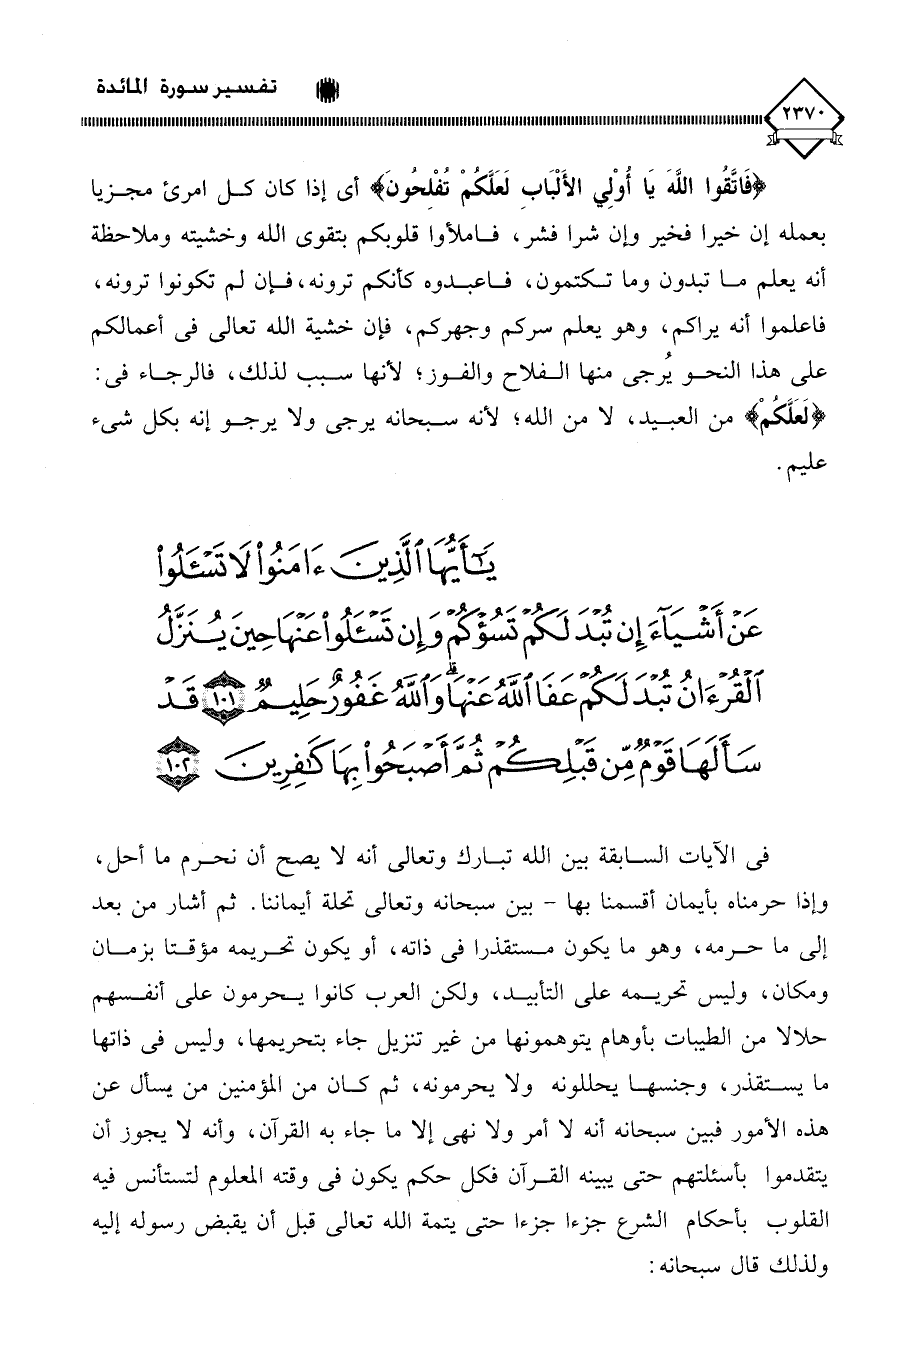 تفسير سورة المائدة
٢٣٧٠
﴿فَاتَّقُوا اللَّهَ يَا أُوْلِي الأَلْبَابِ لَعَلَّكُمْ تُفْلِحُونَ﴾ أى إذا كان كل امرئ مجزيا
بعمله إن خيرا فخير وإن شرا فشر، فاملأوا قلوبكم بتقوى الله وخشيته وملاحظة
أنه يعلم ما تبدون وما تكتمون، فاعبدوه كأنكم ترونه، فإن لم تكونوا ترونه،
فاعلموا أنه يراكم، وهو يعلم سركم وجهركم، فإن خشية الله تعالى فى أعمالكم
على هذا النحو يُرجى منها الفلاح والفوز؛ لأنها سبب لذلك، فالرجاء فى:
﴿لَعَلَّكُمْ﴾ من العبيد، لا من الله؛ لأنه سبحانه يرجى ولا يرجو إنه بكل شىء
عليم.
يَٰٓأَيُّهَا ٱلَّذِينَ ءَامَنُوا۟ لَا تَسْـَٔلُوا۟
عَنْ أَشْيَآءَ إِن تُبْدَ لَكُمْ تَسُؤْكُمْ وَإِن تَسْـَٔلُوا۟ عَنْهَا حِينَ يُنَزَّلُ
ٱلْقُرْءَانُ تُبْدَ لَكُمْ عَفَا ٱللَّهُ عَنْهَا ۗ وَٱللَّهُ غَفُورٌ حَلِيمٌ ١٠١ قَدْ
سَأَلَهَا قَوْمٌ مِّن قَبْلِكُمْ ثُمَّ أَصْبَحُوا۟ بِهَا كَٰفِرِينَ ١٠٢
فى الآيات السابقة بين الله تبارك وتعالى أنه لا يصح أن نحرم ما أحل،
وإذا حرمناه بأيمان أقسمنا بها - بين سبحانه وتعالى تحلة أيماننا. ثم أشار من بعد
إلى ما حرمه، وهو ما يكون مستقذرا فى ذاته، أو يكون تحريمه مؤقتا بزمان
ومكان، وليس تحريمه على التأبيد، ولكن العرب كانوا يحرمون على أنفسهم
حلالا من الطيبات بأوهام يتوهمونها من غير تنزيل جاء بتحريمها، وليس فى ذاتها
ما يستقذر، وجنسها يحللونه ولا يحرمونه، ثم كان من المؤمنين من يسأل عن
هذه الأمور فبين سبحانه أنه لا أمر ولا نهى إلا ما جاء به القرآن، وأنه لا يجوز أن
يتقدموا بأسئلتهم حتى يبينه القرآن فكل حكم يكون فى وقته المعلوم لتستأنس فيه
القلوب بأحكام الشرع جزءا جزءا حتى يتمة الله تعالى قبل أن يقبض رسوله إليه
ولذلك قال سبحانه: